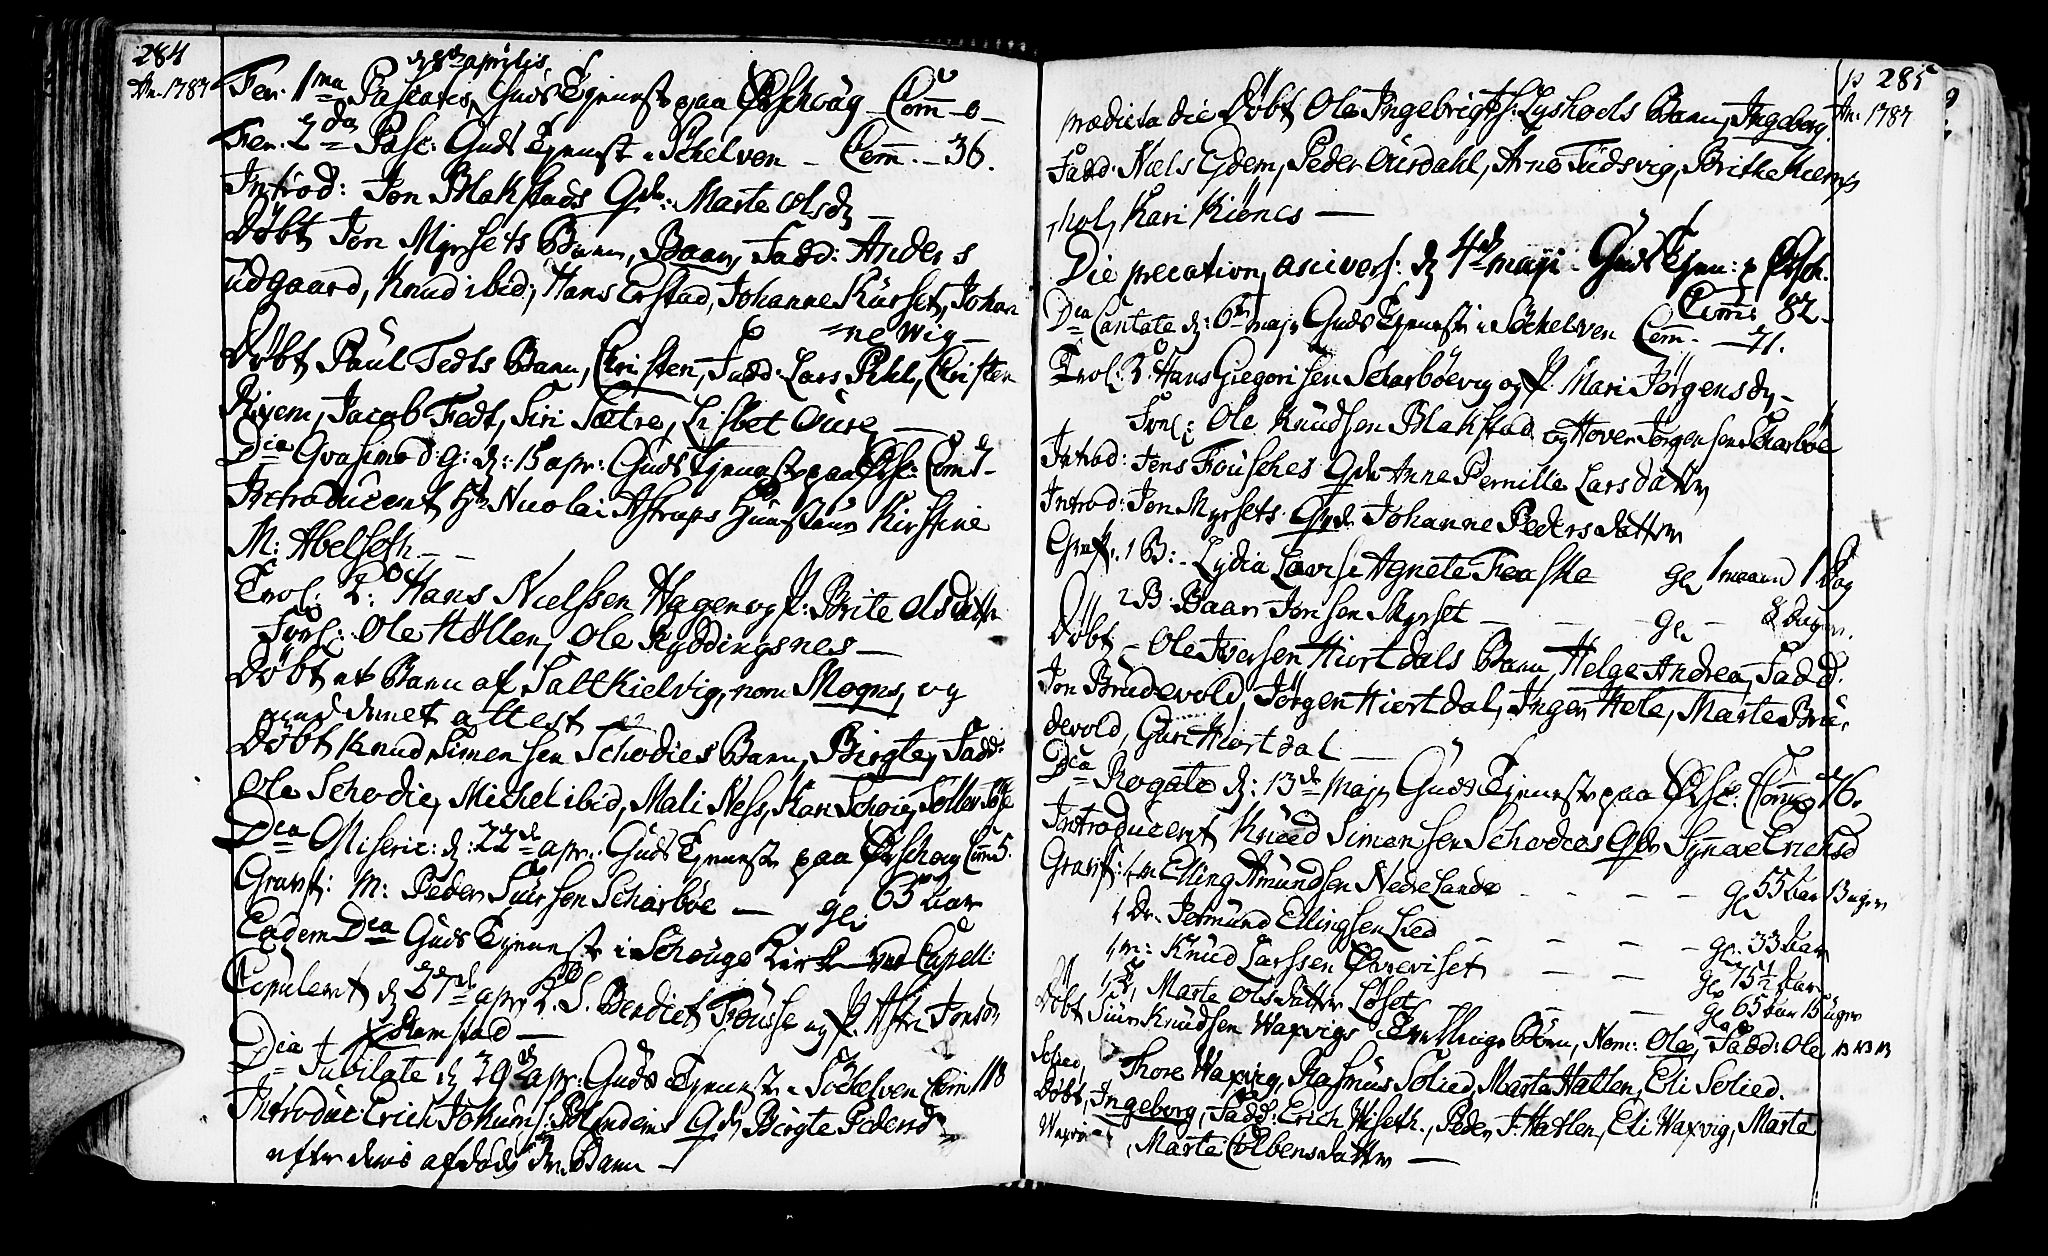 284
An. 1787
d 8de aprilis
Fer. 1ma Pascatis, Guds Tjeneste paa Ørschoug - Com̄ - 0 -
Fer. 2da Pasc: Guds Tjeneste i Schelven - Com̄. - 36.
Introd: Jon Blakstads Qde: Marte Olsd
Døbt Jon Myrsets Barn, Baar, Fadd: Anders
udgaard, Knud ibid, Hans Erstad, Johanne Kurset, Johan
=ne Wiig -
Døbt Paul Fedts Barn, Christen, Fadd: Lars Pehl, Christen
Riiem, Jacob Fedt, Siri Sætre, Lisbet Oure
Dca Qvasimod: g: d: 15 apr: Guds Tjeneste paa Ørsc: Com̄ 7 -
Introduceret Hr Nicolai Astrups Hustrue Kirstine
M: Abelseth -
Trol: K: Hans Nielssen Hagen og P: Brite Olsdatter
Forl: Ole Høllen, Ole Ryddingsnes -
Døbt et Barn af Saltkielvig, nom Mogns, og
med dmet attest
Døbt Knud Simensen Schodies Barn, Birgte, Fadd:
Ole Schodie, Michel ibid, Mali Ness, Kari Schoie,
Dca Miseric: d: 22de apr: Guds Tjeneste paa Ørschoug Com̄ 5.
Gravf: M: Peder Siursen Scharbøe - gl: 63 aar
Eadem Dca Guds Tjeneste i Schouge Capell:
Copuleret d 27de apr K. S. Bendict Fousse og P. Astri Jonsdr
Ramstad -
Dca Jubilate d 29de apr: Guds Tjeneste i Søchelven Com̄ 118
Introduc: Erich Johans: Blindeims Qde Birgte Pedersd
efter deris afdøde Barn -
p 285
An: 1787
prædicta die Døbt Ole Ingebrigts: Lyshods Barn, Ingeborg,
Fadd: Niels Gjdem, Peder Ouedahl, Arne Tudsvig, Brithe
hol, Kari Kiønes -
Die precation, univers: d 4de maji Guds Tjen: p Ørsch.
Com̄ 82 -
Dca Cantate d: 6te maj, Guds Tjeneste i Søchelven Com̄. - 71.
Trol: K: Hans Gregorisen Scharbøevig og P. Mari Jørgensd -
Forl: Ole Knudsen Blakstad og Hover Jørgensen Scharbøe
Introd: Jens Fousches Qde Anne Pernille Larsdatter
Introd: Jon Myrsets Qde Johanne Pedersdatter
Gravf. 1 B: - Lydia Lovise Agnete Feaske gl 1 maaned 1 Dag
2 B: Baar Jonsen Myrset - - gl - 8 dager.
Døbt - Ole Iversen Hiortdals Barn, Helge Andrea, Fadd:
Jon Brudevold, Jørgen Hiortdal, Inger Hole, Marte Bru
devold, Guri Hiortdal -
Dca Rogate d: 13de maj, Guds Tjeneste paa Ørsc: Com̄ 76.
Introduceret Knud Simensen Schodies Qde Synneve Ericksd
Gravf: 1 m Elling Amundsen Nedre Lande - - gl 55 aar 13 uger
1 Dr. Jetmund Ellingsen Lied - - gl: 33 aar
1 m: Knud Larssen Øvreviset - - gl 75½ aar
1 K, Marte Olsdatter Løset - - gl 65 aar 15 uger
Døbt Siur Knudsen Waxvigs Tvillinge Børn, Nom: Ole, Fadd: Ole
Solied, Thore Waxvig, Rasmus Solied, Marte Hatlen, Eli Solied.
Døbt, Ingeborg, Fadd: Erich Wiseth., Peder J: Hatlen, Eli Waxvig, Marte
Waxvig, Marte Colbensdatter -